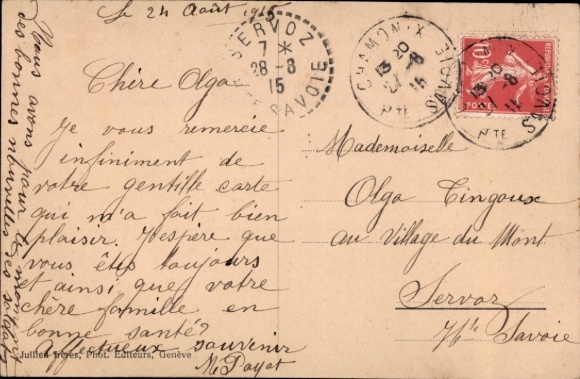 Le 24 Août 1915
Chère Olga
Je vous remercie
infiniment de
votre gentille carte
qui m'a fait bien
plaisir. J'espère que
vous êtes toujours
et ainsi que votre
chère famille en
bonne santé?
Affectueux souvenir
M Payot
Nous avons pour le moment
des bonnes nouvelles des soldats
Jullien frères, Phot. Editeurs, Genève
SERVOZ
7 *
28-8
15
SAVOIE
CHAMONIX
13 20
27-8
15
HTE SAVOIE
10
POSTES
13 20
-8
15
HTE SAVOIE
Mademoiselle
Olga Tingoux
au Village du Mont
Servoz
Hte Savoie